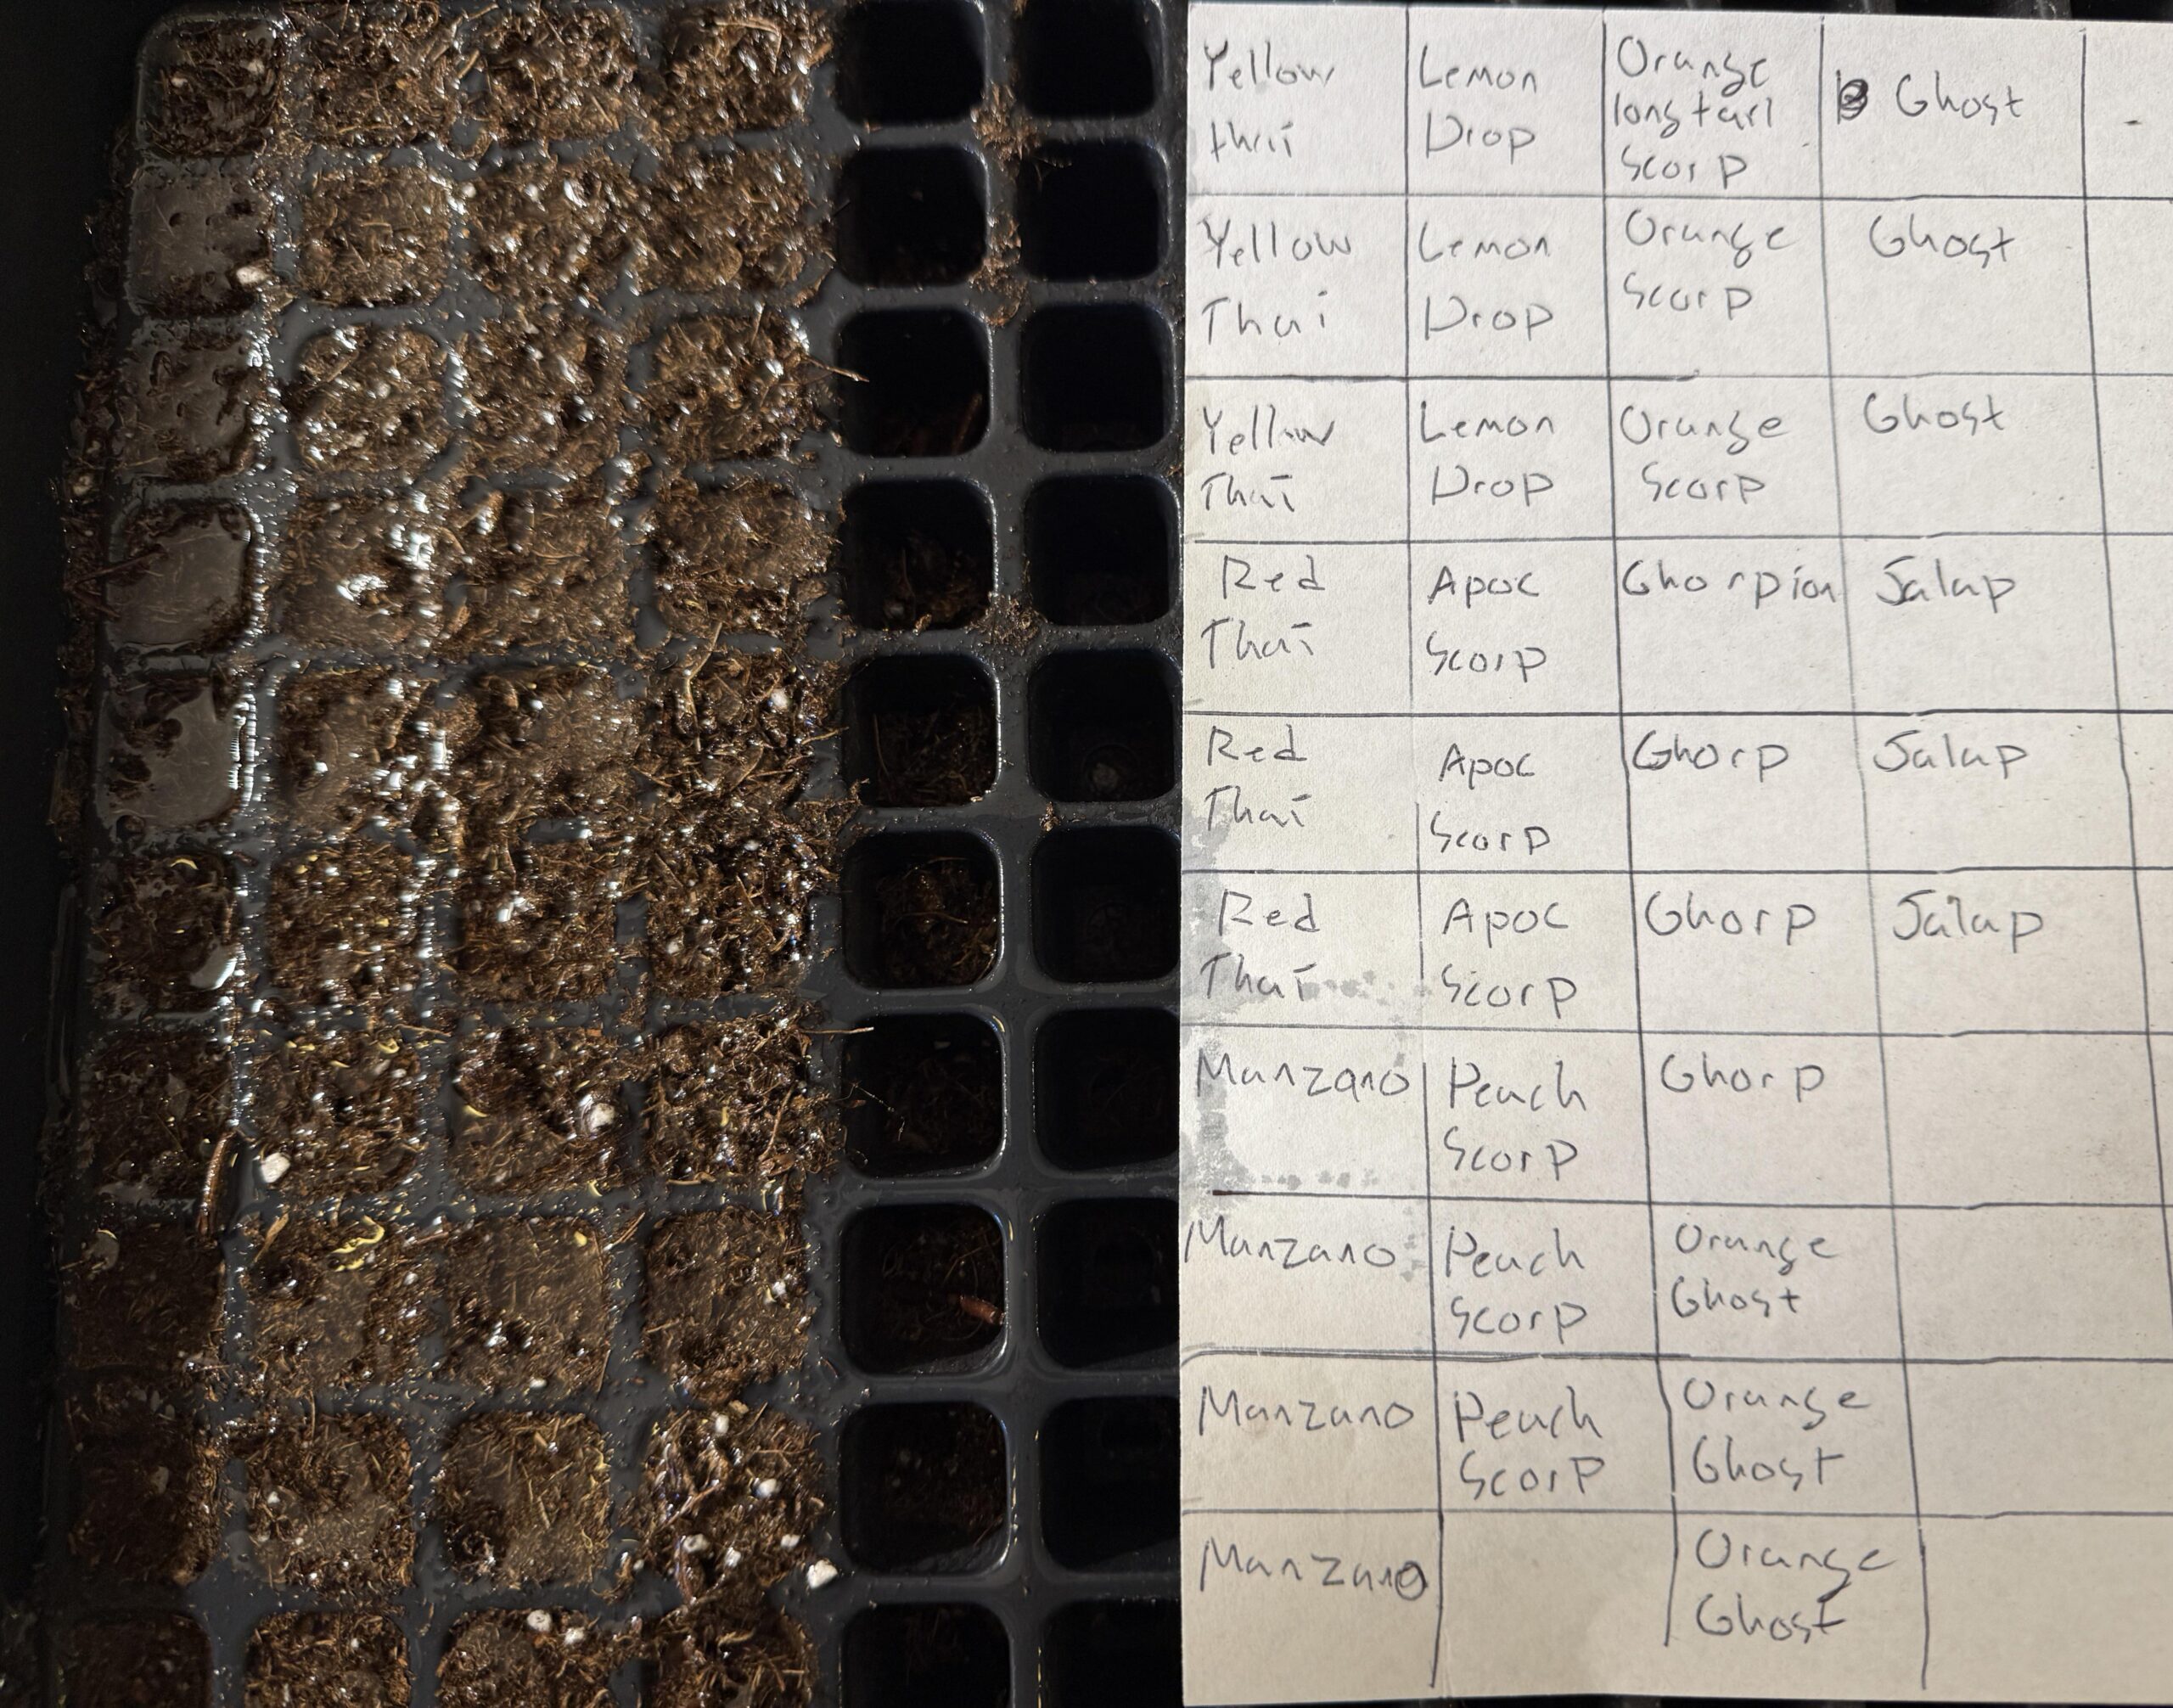 Yellow
thai
Lemon
Drop
Orange
longtail
Scorp
Ghost
-
Yellow
Thai
Lemon
Drop
Orange
Scorp
Ghost
Yellow
Thai
Lemon
Drop
Orange
Scorp
Ghost
Red
Thai
Apoc
Scorp
Ghorpion
Jalap
Red
Thai
Apoc
Scorp
Ghorp
Jalap
Red
Thai
Apoc
Scorp
Ghorp
Jalap
Manzano
Peach
Scorp
Ghorp
Manzano
Peach
Scorp
Orange
Ghost
Manzano
Peach
Scorp
Orange
Ghost
Manzano
Orange
Ghost